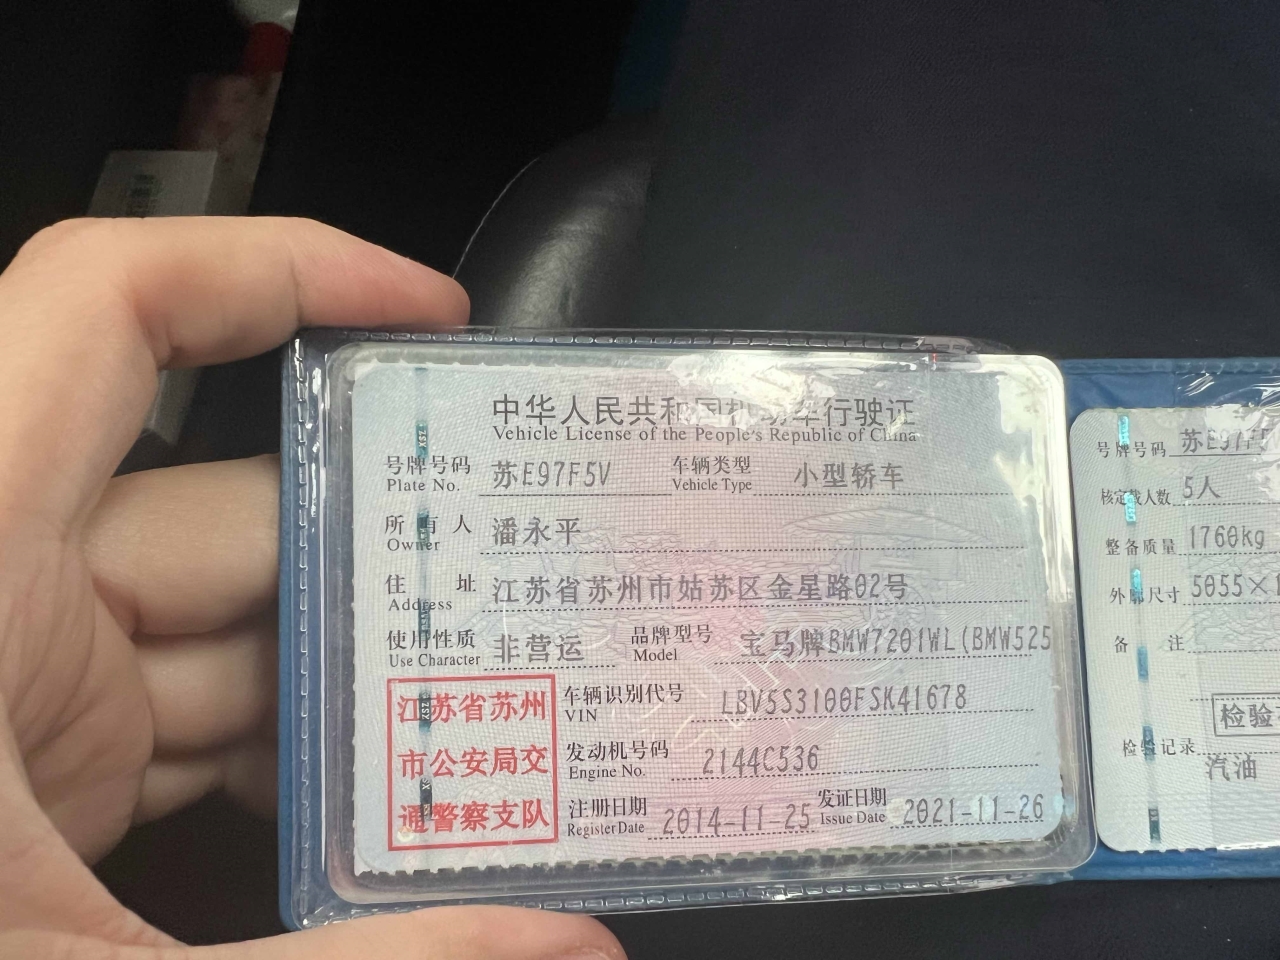 中华人民共和国机动车行驶证
Vehicle License of the People's Republic of China
号牌号码 苏E97F5V 车辆类型 小型轿车
Plate No. Vehicle Type
所有人 潘永平
Owner
住址 江苏省苏州市姑苏区金星路02号
Address
使用性质 非营运 品牌型号 宝马牌BMW7201WL(BMW525
Use Character Model
江苏省苏州
市公安局交
通警察支队
车辆识别代号 LBV5S3100FSK41678
VIN
发动机号码 2144C536
Engine No.
注册日期 2014-11-25 发证日期 2021-11-26
Register Date Issue Date
号牌号码 苏E97F5
核定载人数 5人
整备质量 1760kg
外廓尺寸 5055×
备注
检验
检验记录
汽油